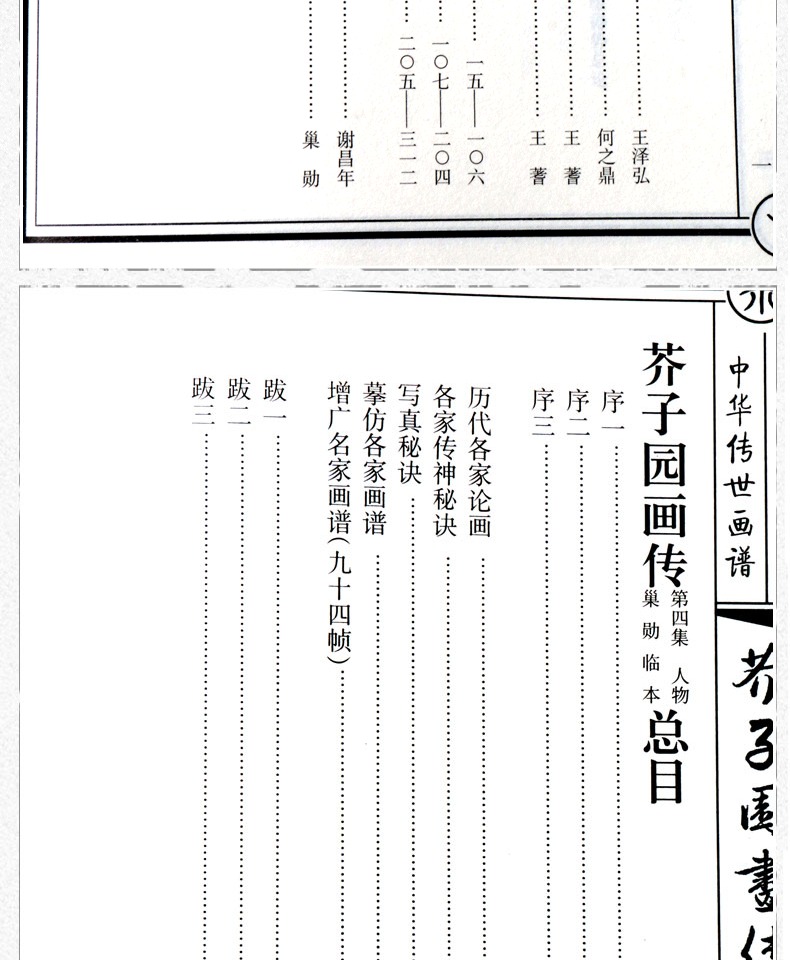 一
王泽弘
何之鼎
王 蓍
王 蓍
一五——一〇六
一〇七——二〇四
二〇五——三一二
谢昌年
巢 勋
中华传世画谱
芥子園畫
芥子园画传 第四集 人物 巢勋临本 总目
序一
序二
序三
历代各家论画
各家传神秘诀
写真秘诀
摹仿各家画谱
增广名家画谱(九十四帧)
跋一
跋二
跋三